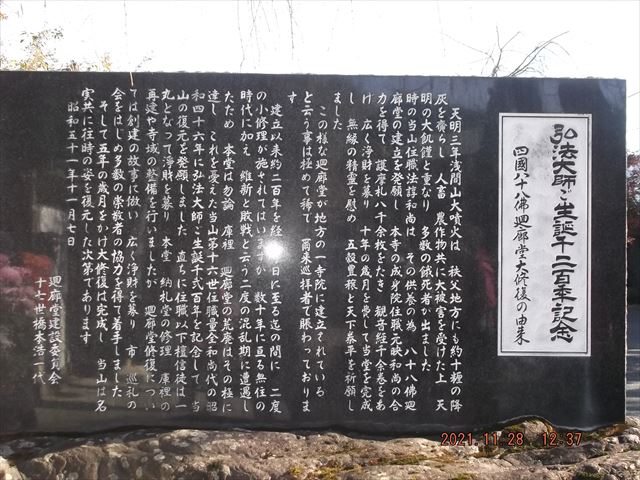 弘法大師ご生誕千二百年記念
四國八十八佛廻廊堂大修復の由来
天明三年浅間山大噴火は 秩父地方にも約十糎の降
灰を齎らし 人畜 農作物共に大被害を受けた上 天
明の大飢饉と重なり 多数の餓死者が出ました
時の当山住職法諄和尚は その供養の為 八十八佛廻
廊堂の建立を発願し 本寺の成身院住職元映和尚の合
力を得て 護摩札八千余枚をたき 観音経千余巻をあ
げ 広く浄財を募り 十年の歳月を費して当堂を完成
し 無縁の精霊を慰め 五穀豊穣と天下泰平を祈願し
ました
この様な廻廊堂が地方の一寺院に建立されている
と云う事は極めて稀で 爾来巡拝者で賑わっておりま
す
建立以来約二百年を経 日に至る迄の間に 二度
の小修理が施されてはいますが 数十年に亘る無住の
時代に加え 維新と敗戦と云う二度の混乱期に遭遇し
たため 本堂は勿論 庫裡 廻廊堂の荒廃はその極に
達し これを憂えた当山第十六世住職量全和尚代の昭
和四十六年に弘法大師ご生誕千弐百年を記念して 当
山の復元を発願しました 直ちに住職以下檀信徒は一
丸となって浄財を募り 本堂 納札堂の修理 庫裡の
再建や寺域の整備を行いましたが 廻廊堂修復につい
ては創建の故事に倣い 広く浄財を募り 市 巡礼の
会をはじめ多数の崇敬者の協力を得て着手しました
そして五年の歳月をかけ大修復は完成し 当山は名
実共に往時の姿を復元した次第であります
昭和五十一年十一月七日
廻廊堂建設委員会
十七世橋本浩一代
2021.11.28 12:37